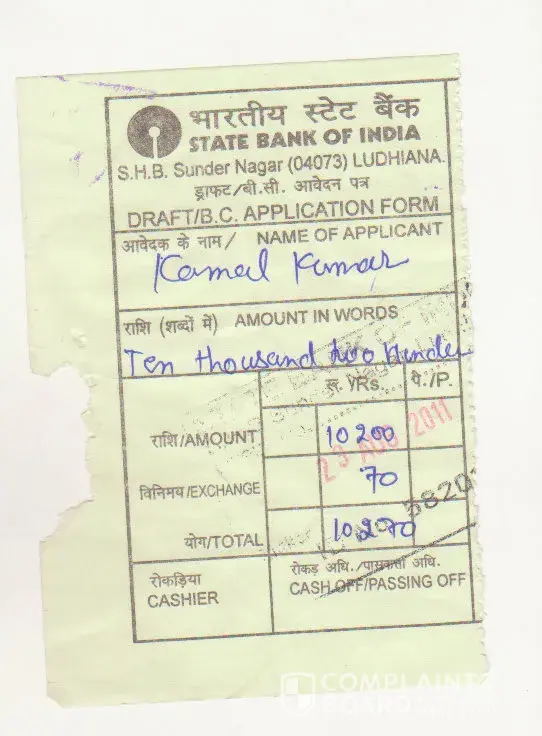 भारतीय स्टेट बैंक
STATE BANK OF INDIA
S.H.B. Sunder Nagar (04073) LUDHIANA.
ड्राफट/बी.सी. आवेदन पत्र
DRAFT/B.C. APPLICATION FORM
आवेदक के नाम/ NAME OF APPLICANT
Kamal Kumar
राशि (शब्दों में) AMOUNT IN WORDS
Ten thousand two Hundre
रु./Rs. पै./P.
राशि/AMOUNT 10200
23 AUG 2011
विनिमय/EXCHANGE 70
3820
योग/TOTAL 10270
रोकड़िया रोकड़ अधि./पासकर्ता अधि.
CASHIER CASH OFF/PASSING OFF
COMPLAINT
BOARD